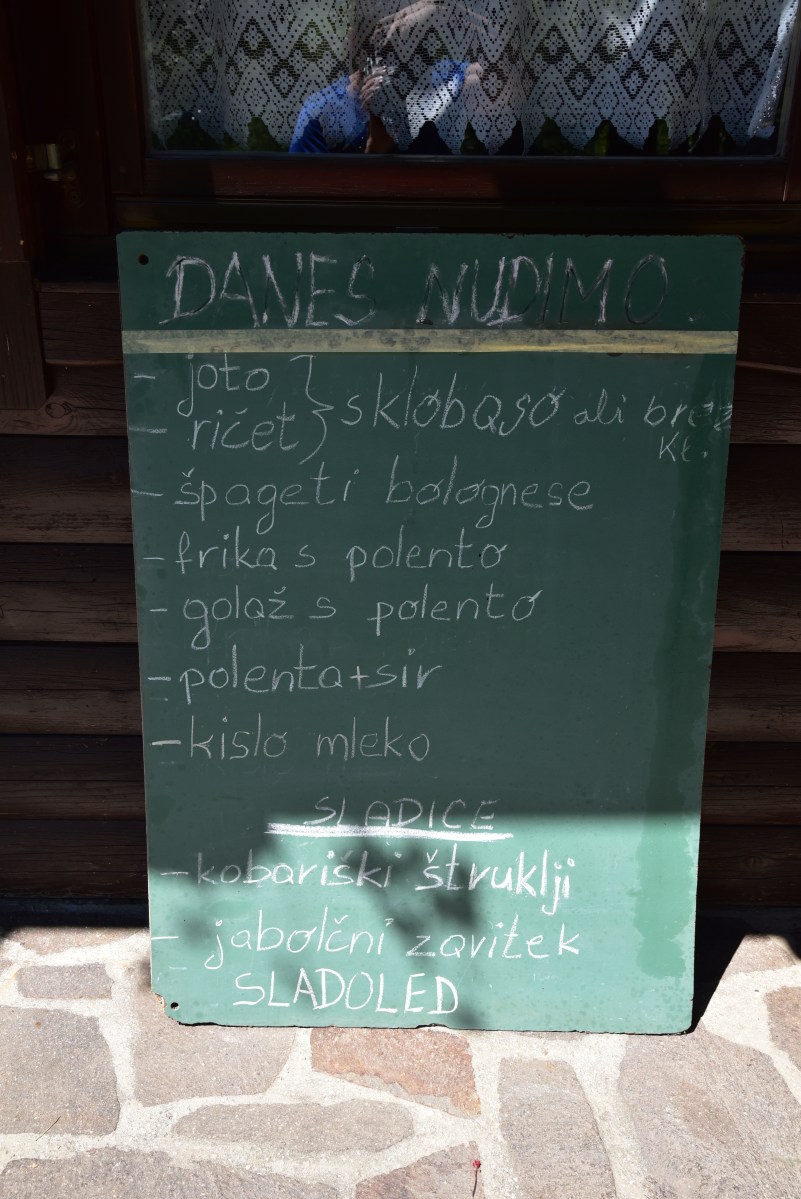 DANES NUDIMO.
- joto } sklobaso ali brez
- ričet } Kl.
- špageti bolognese
- frika s polento
- golaž s polento
- polenta+sir
- kislo mleko
SLADICE
- kobariški štruklji
- jabolčni zavitek
SLADOLED